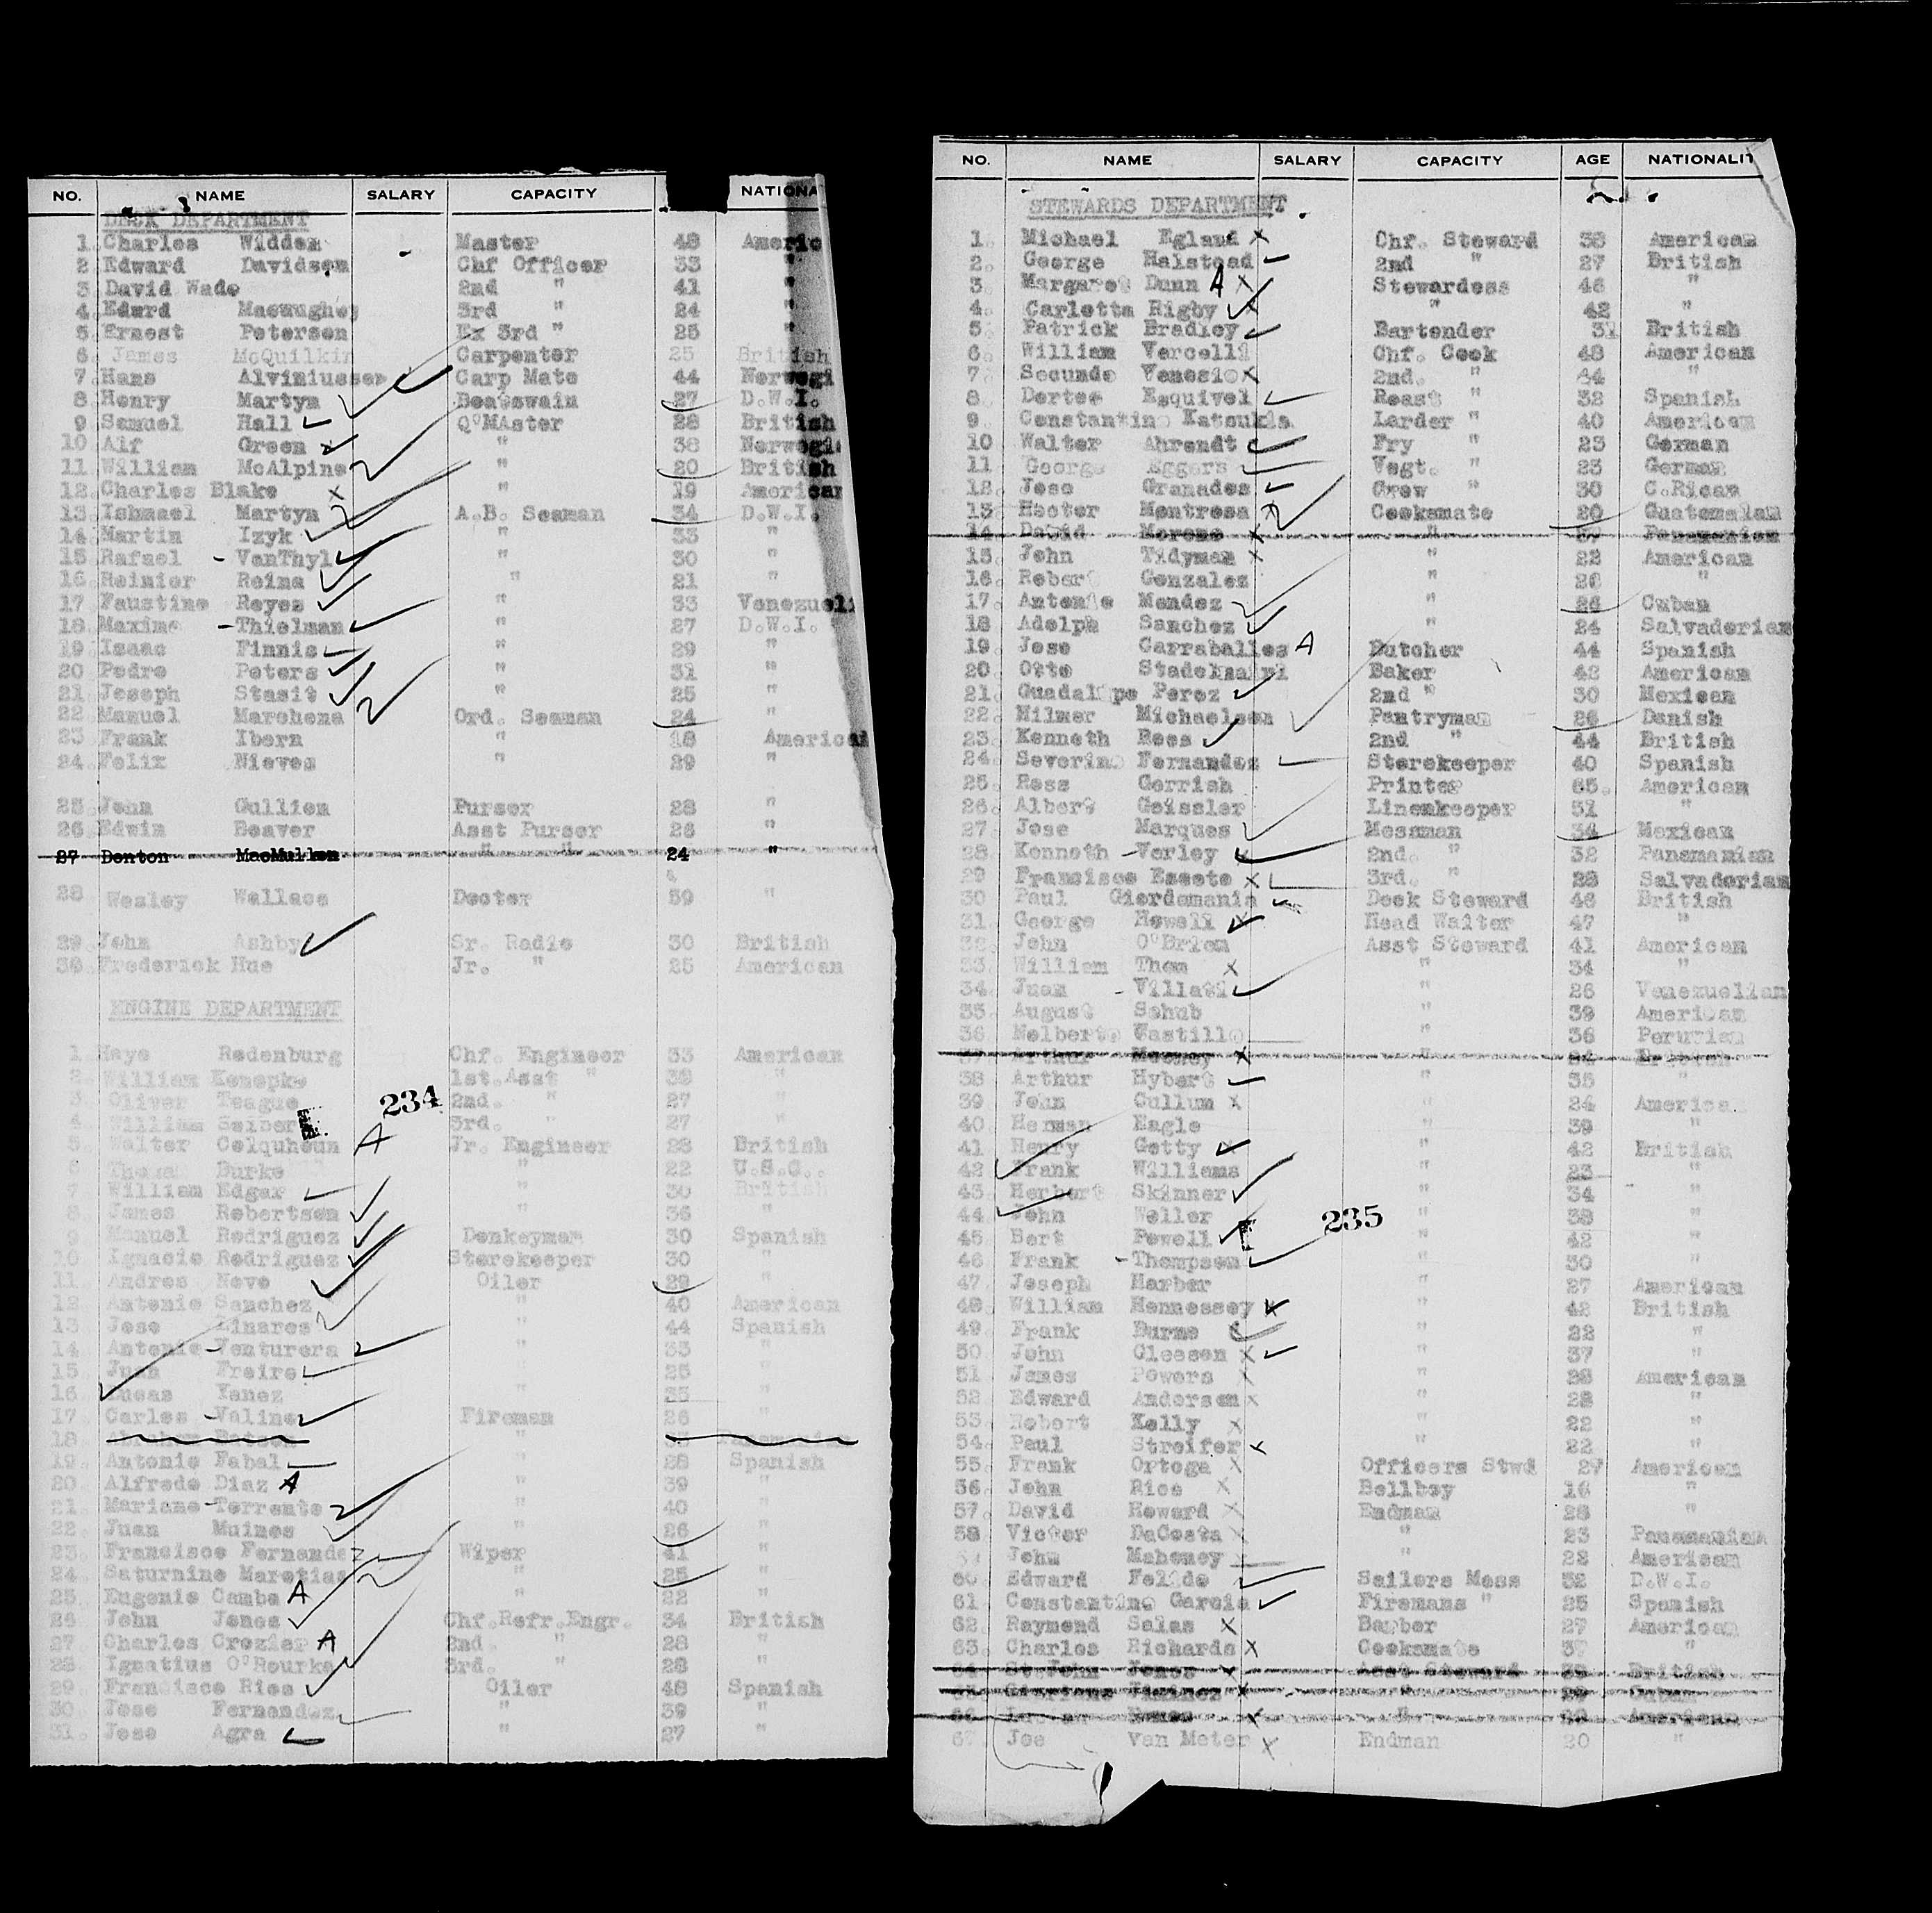 NO. NAME SALARY CAPACITY NATIONA
DECK DEPARTMENT
1 Charles Widden Master 48 Americ
2 Edward Davidsen Chf Officer 33 "
3 David Wade 2nd " 41 "
4 Edard 3rd " 24 "
5 Ernest Petersen Ex 3rd " 25 "
6. James McQuilkin Carpenter 25 British
7. Hans Alviniussen Carp Mate 44 Norwegi
8 Henry Martyn Boatswain 27 D.W.I.
9 Samuel Hall Q'MAster 28 British
10 Alf Green " 38 Norwegia
11 William McAlpine " 20 British
12 Charles Blake X " 19 American
13 Ishmael Martyn A.B. Seaman 34 D.W.I.
14 Martin Izyk " 33 "
15 Rafael - VanThyl " 30 "
16 Reinier Reina " 21 "
17 Faustine Reyes " 33 Venezueli
18 Maximo - Thielman " 27 D.W.I.
19 Isaac Finnis " 29 "
20 Pedro Peters " 31 "
21 Joseph Stasit " 25 "
22 Manuel Marchena Ord. Seaman 24 "
23 Frank Ibern " 18 American
24. Felix Nieves " 29 "
25. John Gullien Purser 28 "
26. Edwin Beaver Asst Purser 26 "
27 Denton MacMullen " " 24 "
28 Wesley Wallace Docter 59 "
29 John Ashby Sr. Radio 30 British
30 Frederick Hue Jr. " 25 American
ENGINE DEPARTMENT
1. Haye Redenburg Chf. Engineer 33 American
2. William Konopke 1st. Asst " 38 "
3. Oliver Teague 2nd. " 27 "
4. William 3rd. " 27 "
234
5. Walter Colquhoun A Jr. Engineer 28 British
6 Thomas Burke " 22 U.S.C.
7 William Edgar " 30 British
8. James Robertson " 36 "
9 Manuel Rodriguez Donkeyman 30 Spanish
10. Ignacio Rodriguez Storekeeper 30 "
11. Andres Nove Oiler 29 "
12. Antonio Sanchez " 40 American
13. Jose Linares " 44 Spanish
14. Antonio - Venturera " 33 "
15. Juan Freire " 25 "
16. Lucas Yanez " 35 "
17. Carlos - Valine Fireman 26 "
18. "
19. Antonio Fabal " 28 Spanish
20. Alfredo Diaz A " 39 "
21. Mariano - Torrente " 40 "
22. Juan Muines " 26 "
23. Francisco Fernandez Wiper 41 "
24. Saturnine " 25 "
25. Eugenio Camba A " 22 "
26. John Jones Chf.Refr.Engr. 34 British
27. Charles Crozier A 2nd. " 28 "
28. Ignatius O'Rourke 3rd. " 28 "
29. Francisco Rios Oiler 48 Spanish
30. Jose Fernandez " 39 "
31. Jose Agra " 27 "
NO. NAME SALARY CAPACITY AGE NATIONALIT
STEWARDS DEPARTMENT
1. Michael Egland X Chf. Steward 38 American
2. George Halstead 2nd " 27 British
3. Margaret Dunn A X Stewardess 46 "
4. Carletta Rigby X " 42 "
5. Patrick Bradley Bartender 31 British
6. William Vercelli Chf. Cook 48 American
7 Secundo Venesio X 2nd. " 44 "
8. Dortee Esquivel Roast " 32 Spanish
9. Constantino Katsukis Larder " 40 American
10 Walter Ahrendt Fry " 23 German
11 George Eggers Vegt. " 23 German
12. Jose Granados Crew " 30 C.Rican
13. Hector Montresa X Cooksmate 20 Guatemalan
14 David Moreno X " 37 Panamanian
15. John Tidyman X " 22 American
16. Robert Gonzalez " 26 "
17. Antonio Mendez " 26 Cuban
18 Adolph Sanchez " 24 Salvadorian
19. Jose Carraballes A Butcher 44 Spanish
20. Otto Baker 42 American
21. Guadalupe Perez 2nd " 30 Mexican
22. Hilmer Michaelsen Pantryman 26 Danish
23. Kenneth Rees 2nd " 44 British
24. Severino Fernandez Storekeeper 40 Spanish
25. Ross Gerrish Printer 65. American
26. Albert Geissler Linenkeeper 51 "
27. Jose Marques Messman 34 Mexican
28 Kenneth - Verley 2nd. " 32 Panamanian
29 Francisco Escoto X 3rd. " 28 Salvadorian
30 Paul Giordomania Deck Steward 46 British
31. George Howell Head Waiter 47 "
32. John O'Brien Asst Steward 41 American
33. William Thom X " 34 "
34. Juan - Villati " 26 Venezuelian
35. August Schub " 39 American
36. Nolberto Castillo " 36 Peruvian
37 Arthur X " British
38 Arthur Hybert " 35 "
39 John Cullum X " 24 America
40. Herman Eagle " 39 "
41 Henry Getty X " 42 British
42 Frank Williams " 23 "
43. Herbert Skinner " 34 "
44. John Weller " 38 "
235
45 Bert Powell " 42 "
46 Frank - Thompson " 30 "
47. Joseph Harber " 27 American
48. William Hennessey X " 42 British
49. Frank Burns " 22 "
50 John Gleeson X " 37 "
51 James Powers X " 28 American
52 Edward Anderson X " 28 "
53. Robert Kelly X " 22 "
54. Paul Streifer X " 22 "
55. Frank Ortega X Officers Stwd 27 American
56. John Rice X Bellboy 16 "
57. David Howard X Endman 28 "
58 Victor DaCosta X " 23 Panamanian
59 John Mahoney X " 22 American
60. Edward Felide Sailors Mess 32 D.W.I.
61. Constantino Garcia Firemans " 25 Spanish
62. Raymond Salas X Barber 27 American
63. Charles Richards X Cooksmate 37 "
64. St.John Jones X Asst Steward 38 British
Jiminez X Cuban
66 X " American
67. Joe Van Meter X Endman 20 "